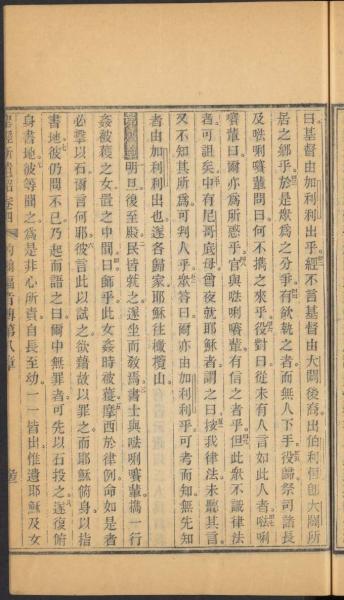 曰基督由加利利出乎經不言基督由大闢後裔出伯利恒即大闢所
居之鄉乎於是眾為之分爭有欲執之者而無人下手役歸祭司諸長
及唦唎嚽輩問曰何不攜之來乎役對曰從未有人言如此人者唦唎
嚽輩曰爾亦為所惑乎官與唦唎嚽輩有信之者乎但此眾不識律法
者可詛矣中有尼哥底母曾夜就耶穌者謂之曰按我律法未聽其言
又不知其所為可判人乎眾答曰爾亦由加利利乎可考而知無先知
者由加利利出也遂各歸家耶穌往橄欖山
明旦復至殿民皆就之遂坐而敎焉書士與唦唎嚽輩攜一行
姦被獲之女置之中間曰師乎此女姦時被獲摩西於律例命如是者
必擊以石爾言何耶彼言此以試之欲藉故以罪之而耶穌俯身以指
書地彼仍問不已乃起而語之曰爾中無罪者可先以石投之遂復俯
身書地彼等聞之為是非心所責自長至幼一一皆出惟遺耶穌及女
卷四 約翰福音傳第八章